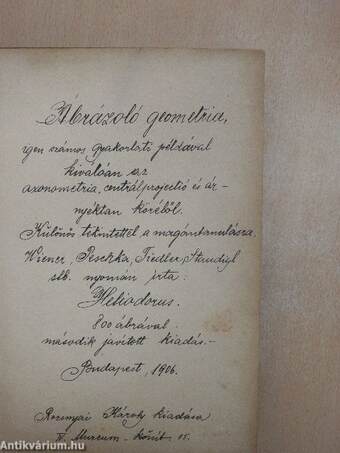 Ábrázoló geometria,
igen számos gyakorlati példával
kiválóan az
axonometria, centrálprojectió és ár-
nyéktan köréből.
Különös tekintettel a magántanulásra.
Wiener, Peschka, Fiedler, Staudigl
stb. nyomán írta:
Heliodorus.
800 ábrával.
második javított kiadás.-
Budapest, 1906.
Rozsnyai Károly kiadása
Muzeum - körút 15.
Antikvárium.hu
antikvarium.hu